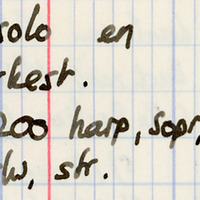 solo en
rkest.
200 harp, sopr,
lw, str.